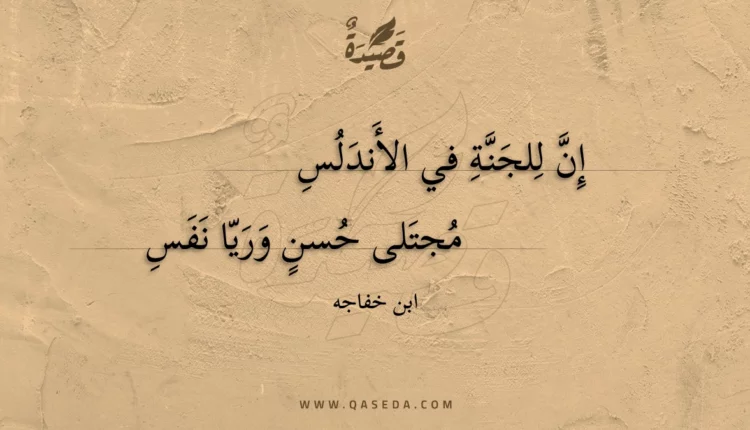 قَصِيْدَةٌ
إِنَّ لِلجَنَّةِ في الأَندَلُسِ
مُجتَلى حُسنٍ وَرَيّا نَفَسِ
ابن خفاجه
WWW.QASEDA.COM